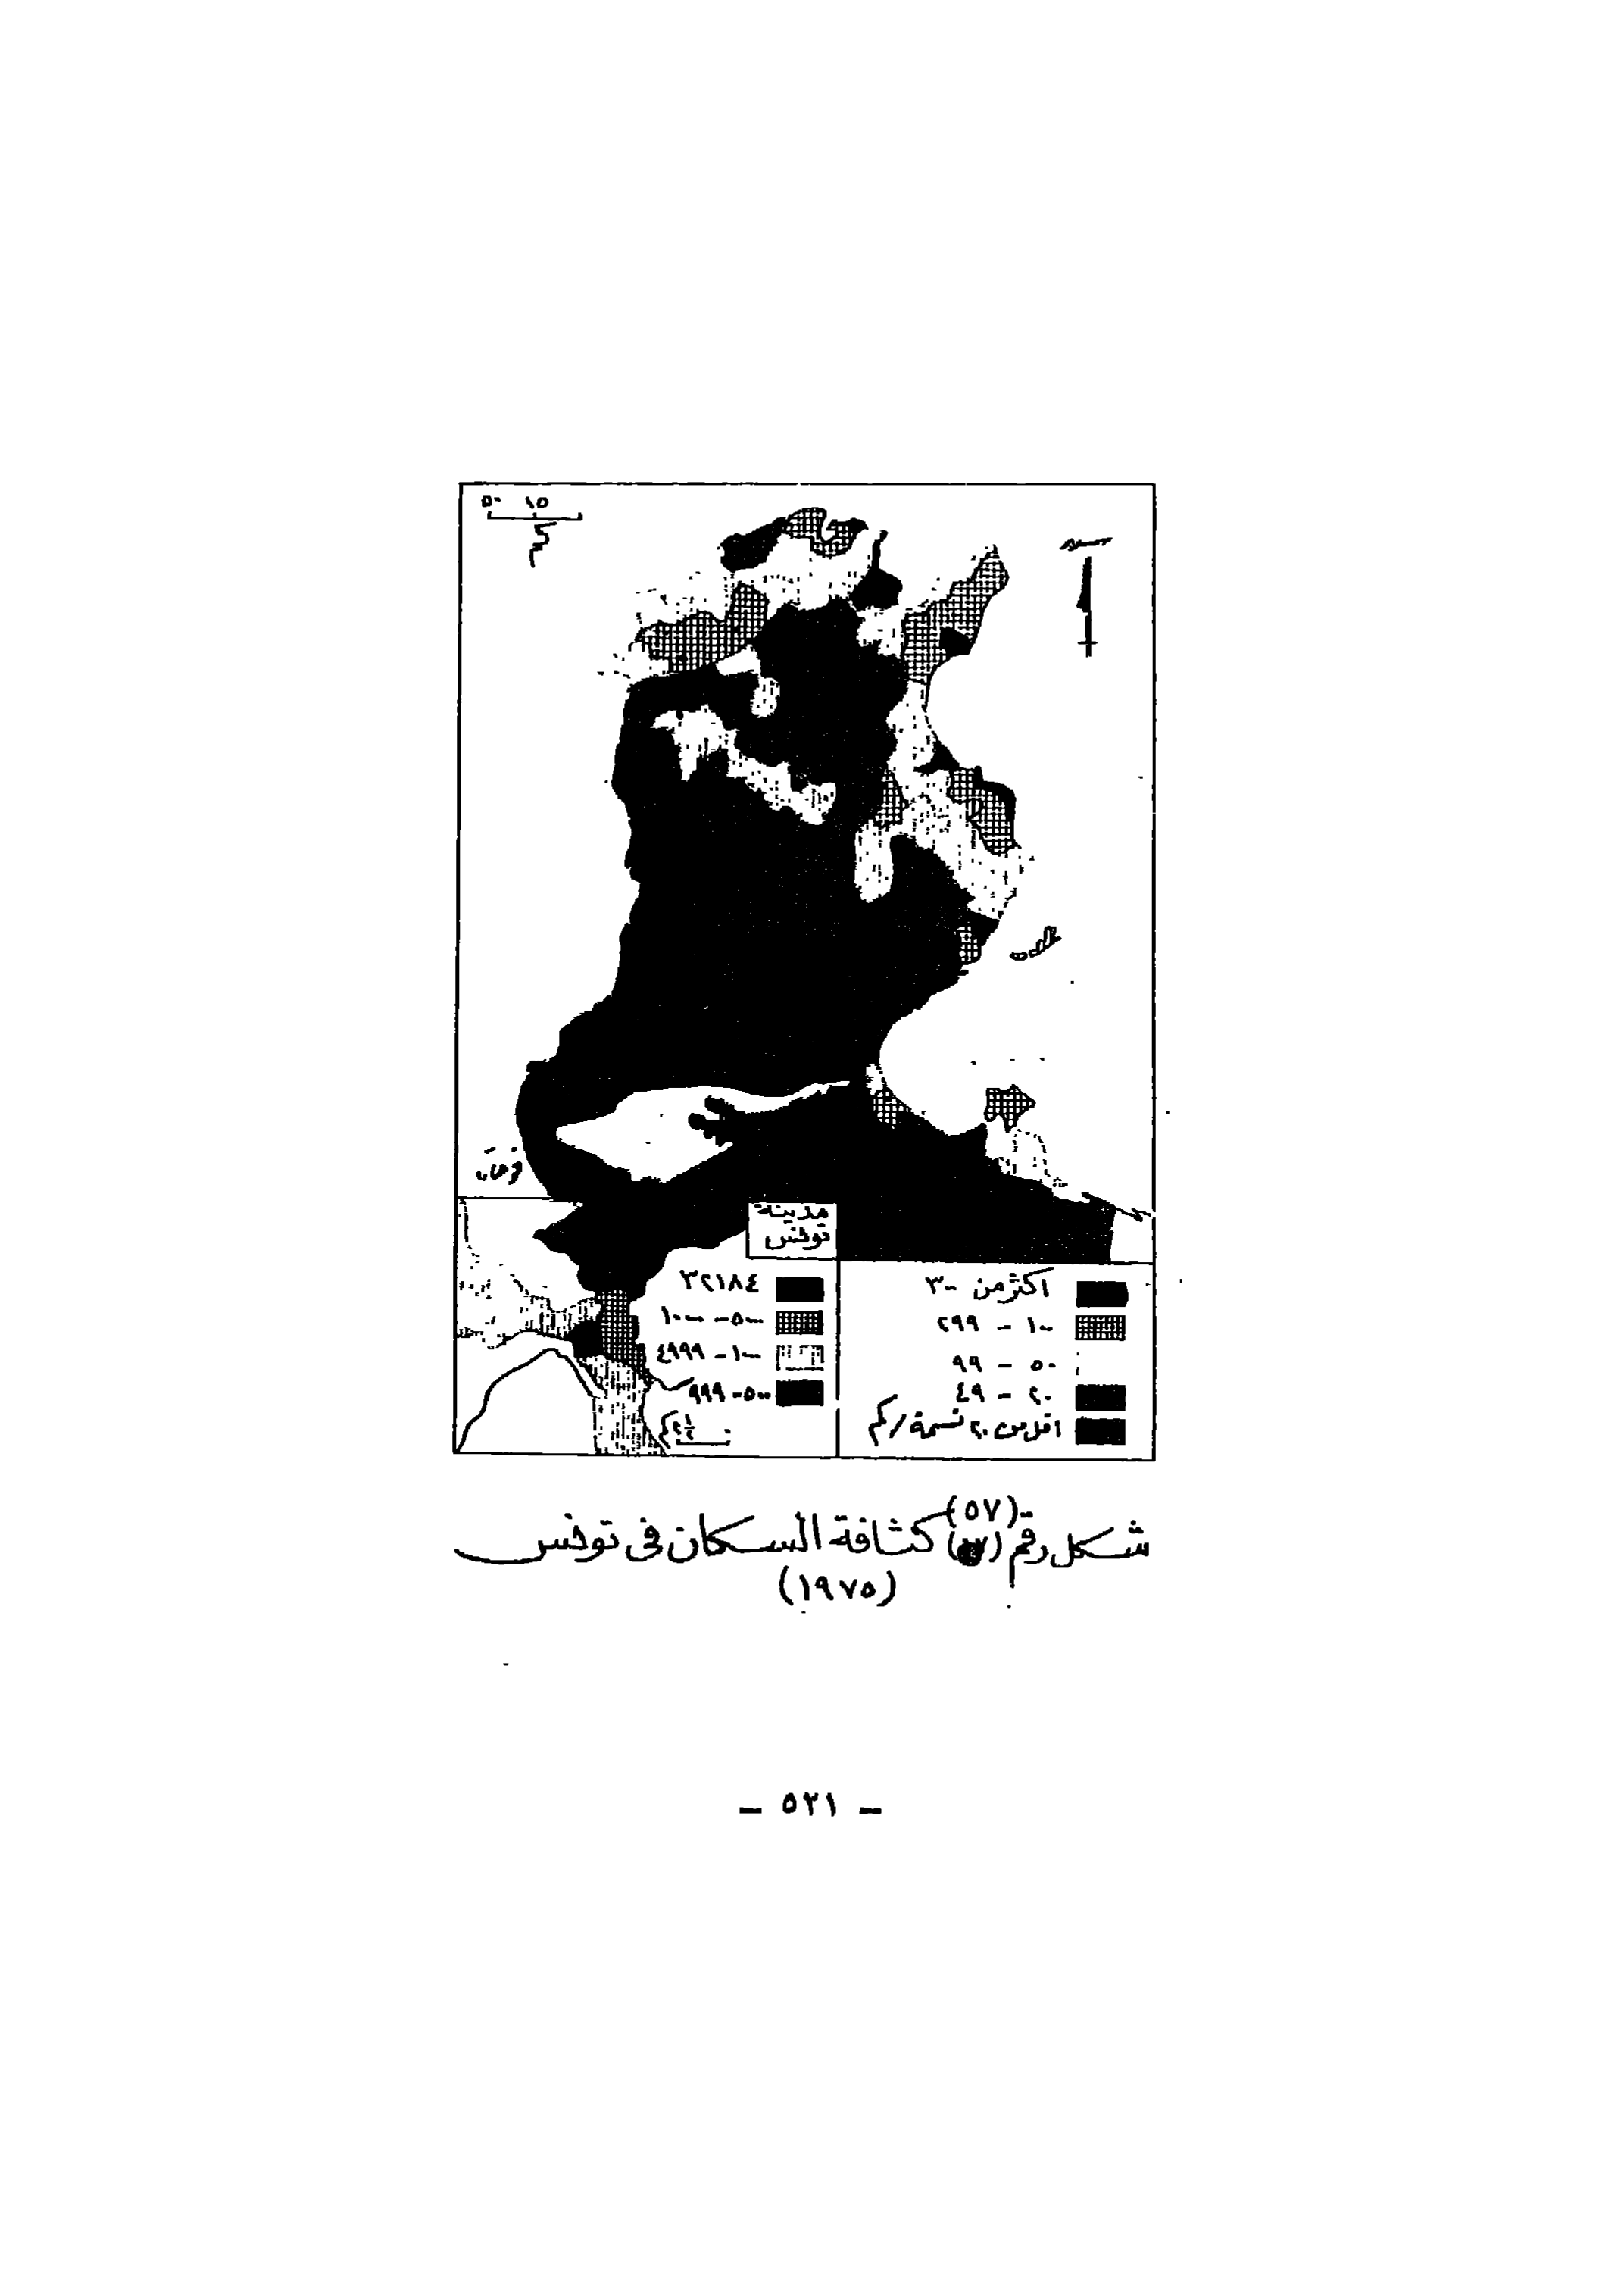 ٥٠ ١٥
كم
مدينة
تونس
٣٢١٨٤
٥٠٠٠ - ١٠٠٠٠
١٠٠٠ - ٤٩٩٩
٥٠٠ - ٩٩٩
اكثر من ٣٠٠
١٠٠ - ٢٩٩
٥٠ - ٩٩
٢٠ - ٤٩
اقل من ٢٠ نسمة/كم
(٥٧)
شكل رقم كثافة السكان فى تونس
(١٩٧٥)
- ٥٢١ -